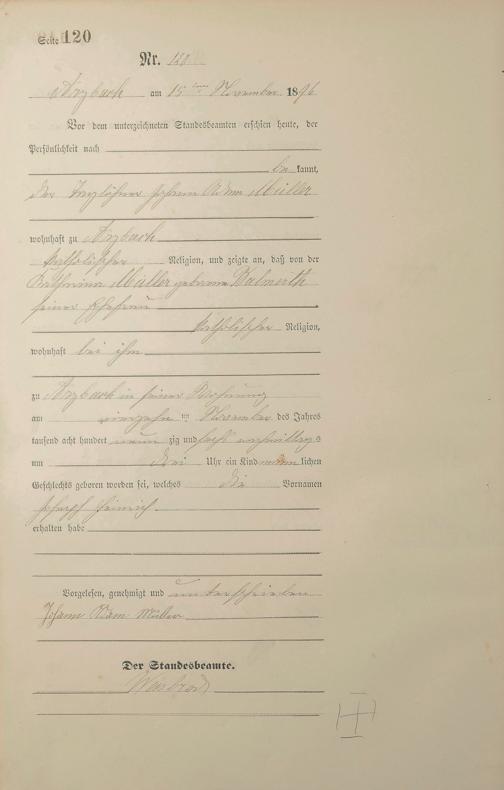 Seite 120
Nr. 120
Arzbach am 15ten November 1896
Vor dem unterzeichneten Standesbeamten erschien heute, der
Persönlichkeit nach
be kannt,
der Taglöhner Johann Adam Müller
wohnhaft zu Arzbach
katholischer Religion, und zeigte an, daß von der
Katharina Müller geborene
seiner Ehefrau
katholischer Religion,
wohnhaft bei ihm
zu Arzbach in seiner Wohnung
am vierzehn ten November des Jahres
tausend acht hundert neun zig und sechs nachmittags
um drei Uhr ein Kind männ lichen
Geschlechts geboren worden sei, welches die Vornamen
Joseph Heinrich
erhalten habe
Vorgelesen, genehmigt und unterschrieben
Johann Adam Müller
Der Standesbeamte.
Weisbrod